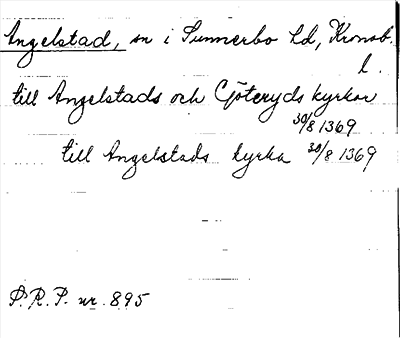 Angelstad, sn i Sunnerbo hd, Kronob.
l.
till Angelstads och Göteryds kyrkor
30/8 1369
till Angelstads kyrka 30/8 1369
P.R.P. nr 895